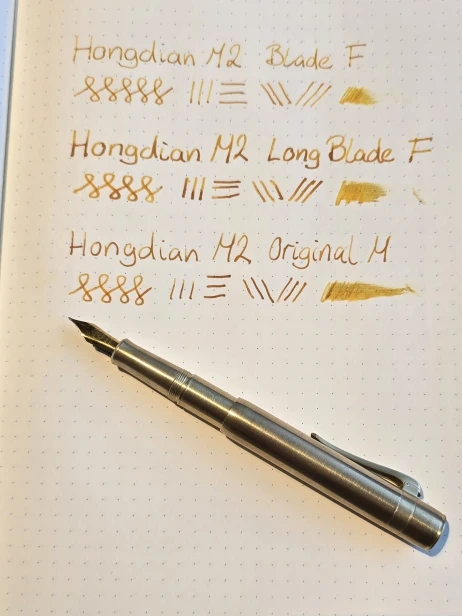 Hongdian M2 Blade F
Hongdian M2 Long Blade F
Hongdian M2 Original M